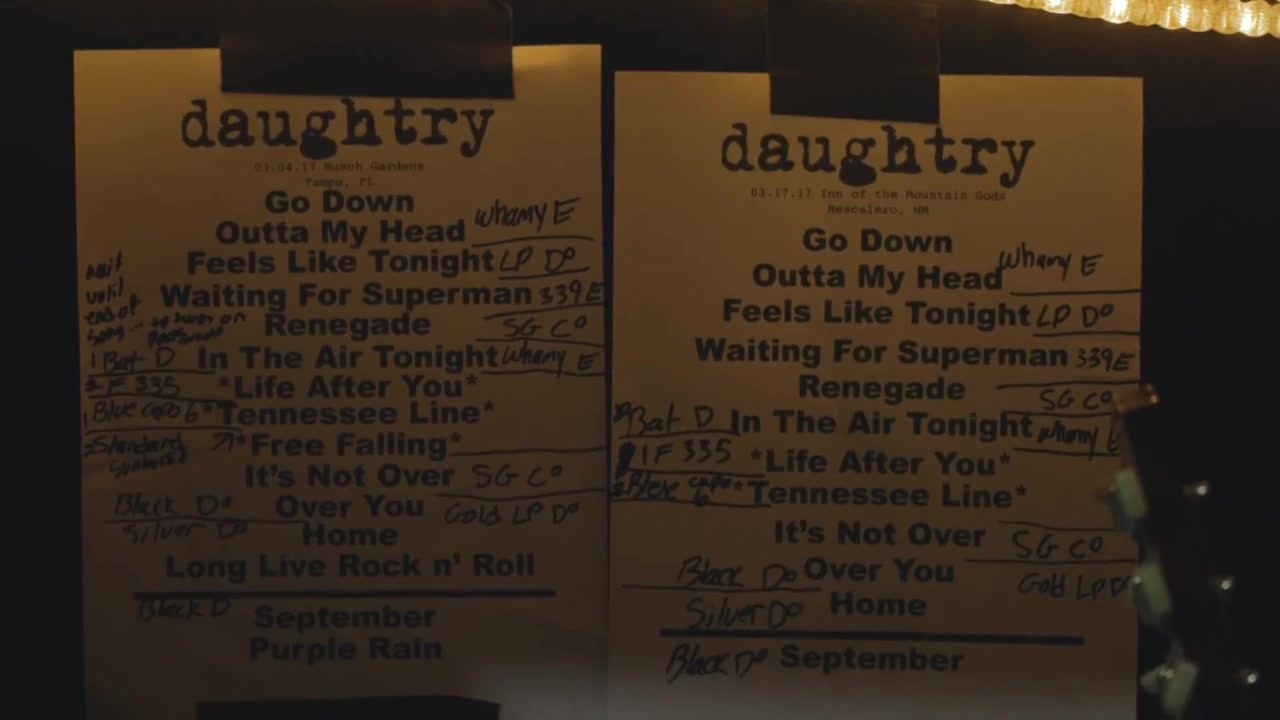 daughtry
03.04.17 Busch Gardens
Tampa, FL
Go Down
Outta My Head whamy E
Feels Like Tonight LP D°
Waiting For Superman 339 E
wait
until
end of
song... to turn on
Renegade SG C°
1 Bat D In The Air Tonight whamy E
2 F 335 *Life After You*
1 Blue capo 6 *Tennessee Line*
2 Standard
Sunburst
*Free Falling*
It's Not Over SG C°
Black D° Over You Gold LP D°
Silver D° Home
Long Live Rock n' Roll
Black D September
Purple Rain
daughtry
03.17.17 Inn of the Mountain Gods
Mescalero, NM
Go Down
Outta My Head whamy E
Feels Like Tonight LP D°
Waiting For Superman 339 E
Renegade SG C°
Bat D In The Air Tonight whamy E
1 F 335 *Life After You*
Blue capo 6 *Tennessee Line*
It's Not Over SG C°
Black D° Over You Gold LP D°
Silver D° Home
Black D° September